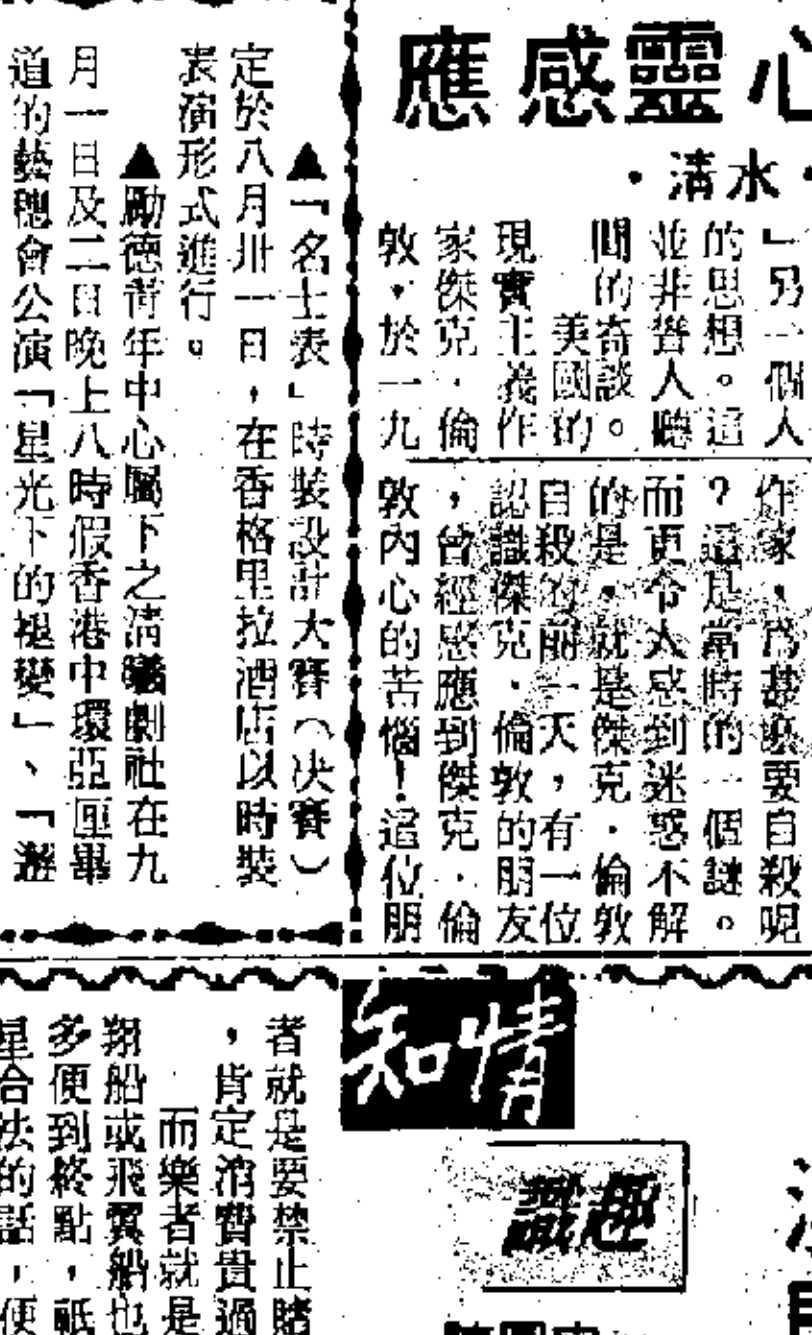 心靈感應
·清水·
」另一個人
的思想。這
並非聳人聽
聞的奇談。
美國的
現實主義作
家傑克·倫
敦，於一九
作家，爲甚麽要自殺呢
？這是當時的一個謎。
而更令人感到迷惑不解
的是，就是傑克·倫敦
自殺的前一天，有一位
認識傑克·倫敦的朋友
，曾經感應到傑克·倫
敦內心的苦惱！這位朋
▲「名士表」時裝設計大賽（決賽）
定於八月卅一日，在香格里拉酒店以時裝
表演形式進行。
▲勵德青年中心屬下之清曦劇社在九
月一日及二日晚上八時假香港中環亞厘畢
道的藝穗會公演「星光下的褪變」、「遊
知情
識趣
者就是要禁止賭
，肯定消費貴過
而樂者就是
翔船或飛翼船也
多便到終點，祇
星合法的話，便